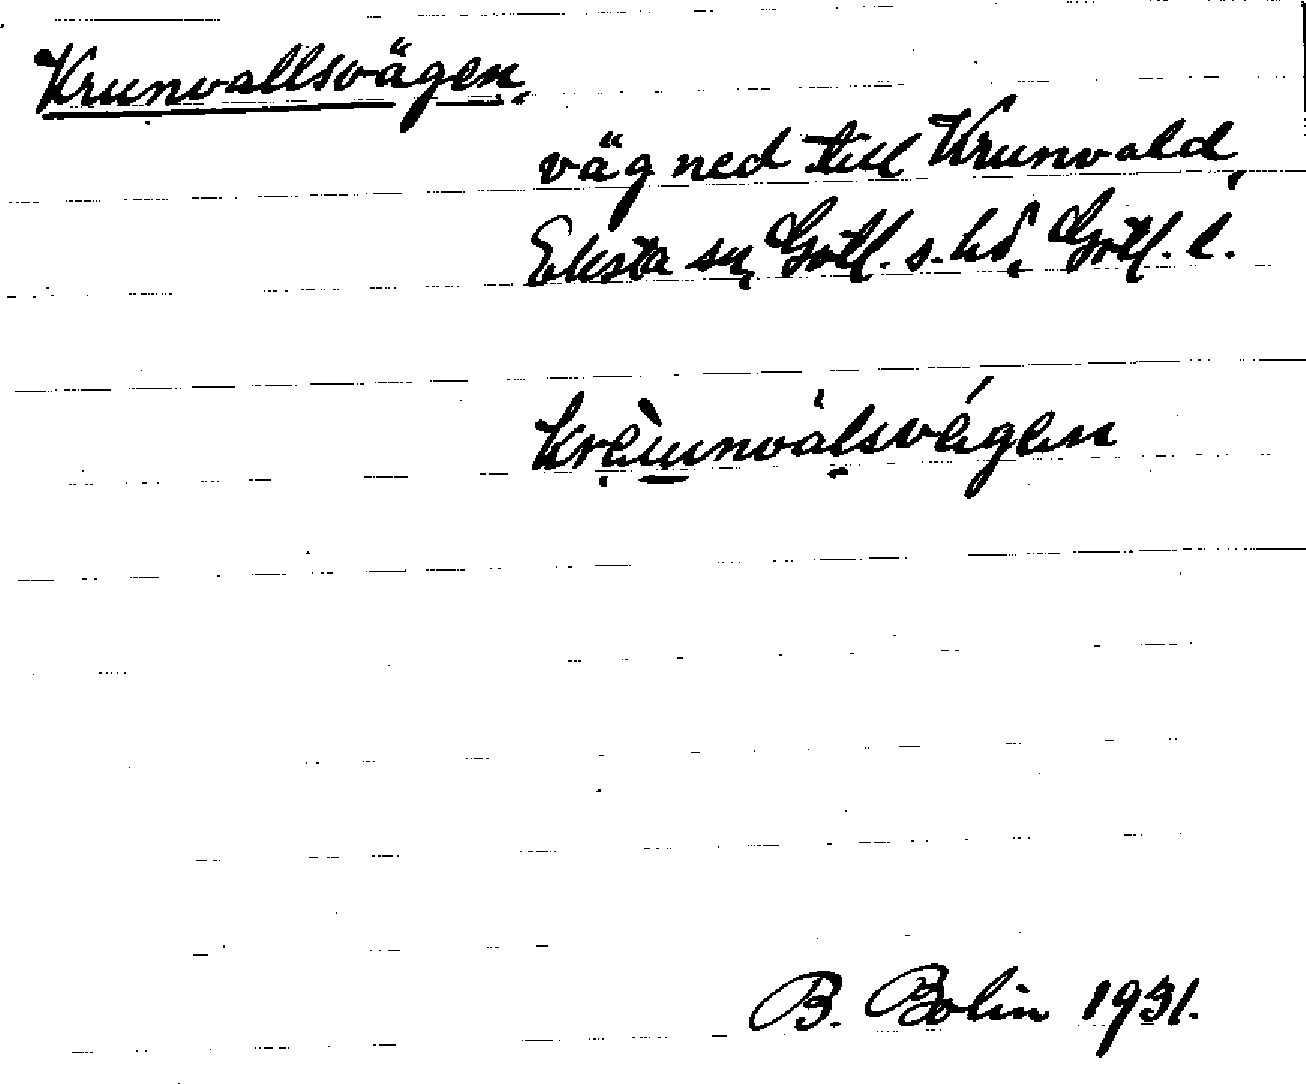 Krunvallsvägen,
väg ned till Krunvald,
Eksta sn, Gotl. s. hd, Gotl. l.
B. Bolin 1931.